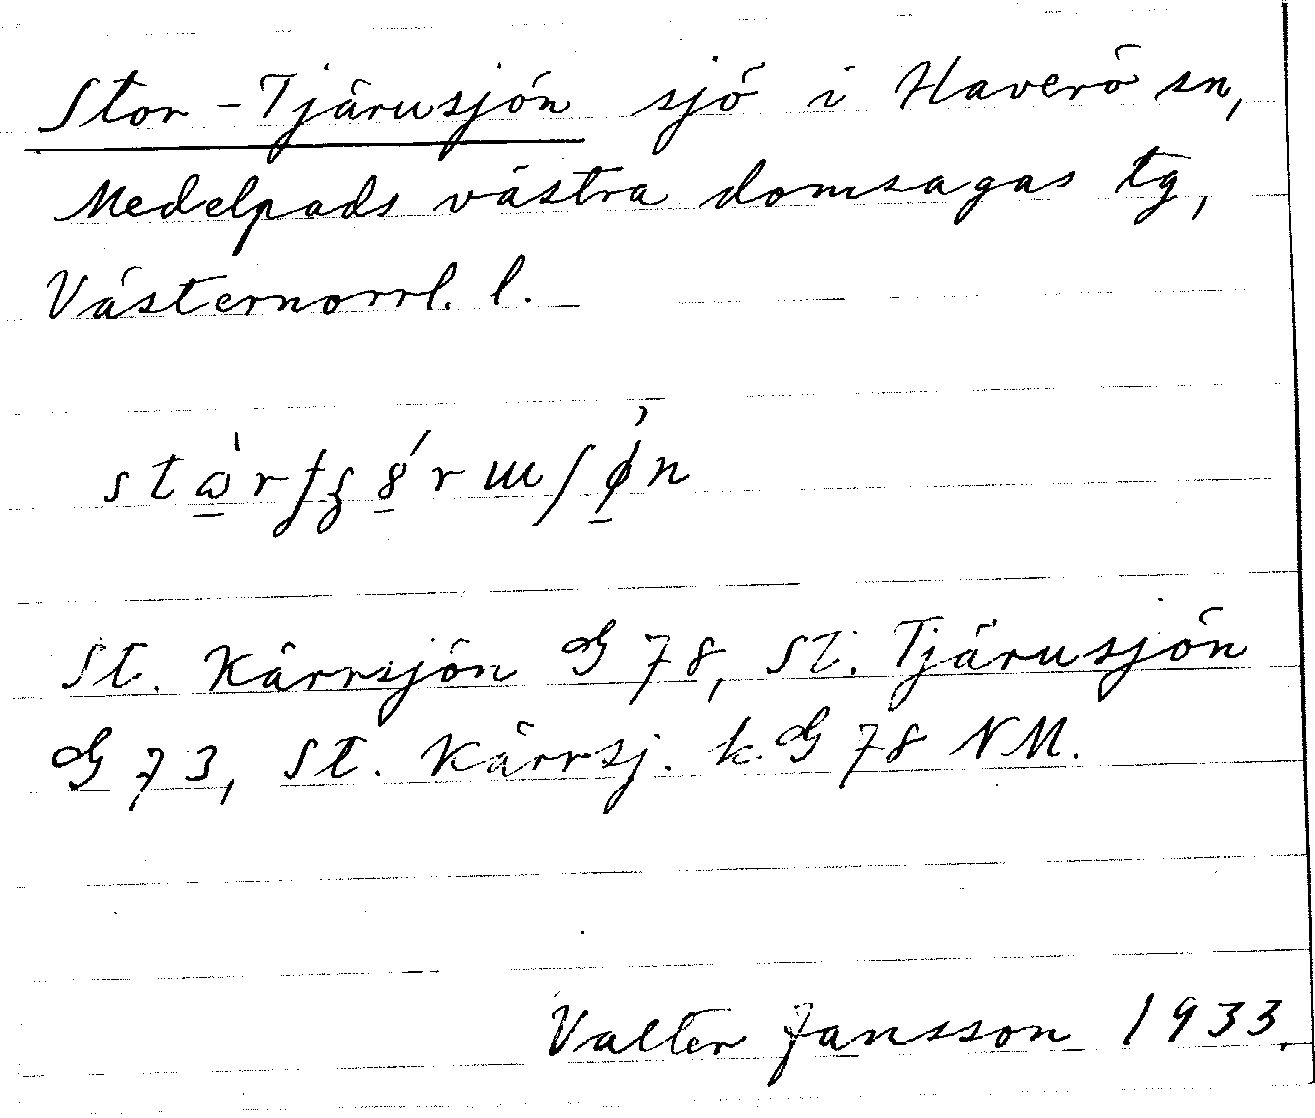 Stor-Tjärusjön sjö i Haverö sn,
Medelpads västra domsagas tg,
Västernorrl. l.
St. Kärrsjön G 78, St. Tjärusjön
G 73, St. Kärrsj. k. G 78 NM.
Valter Jansson 1933.